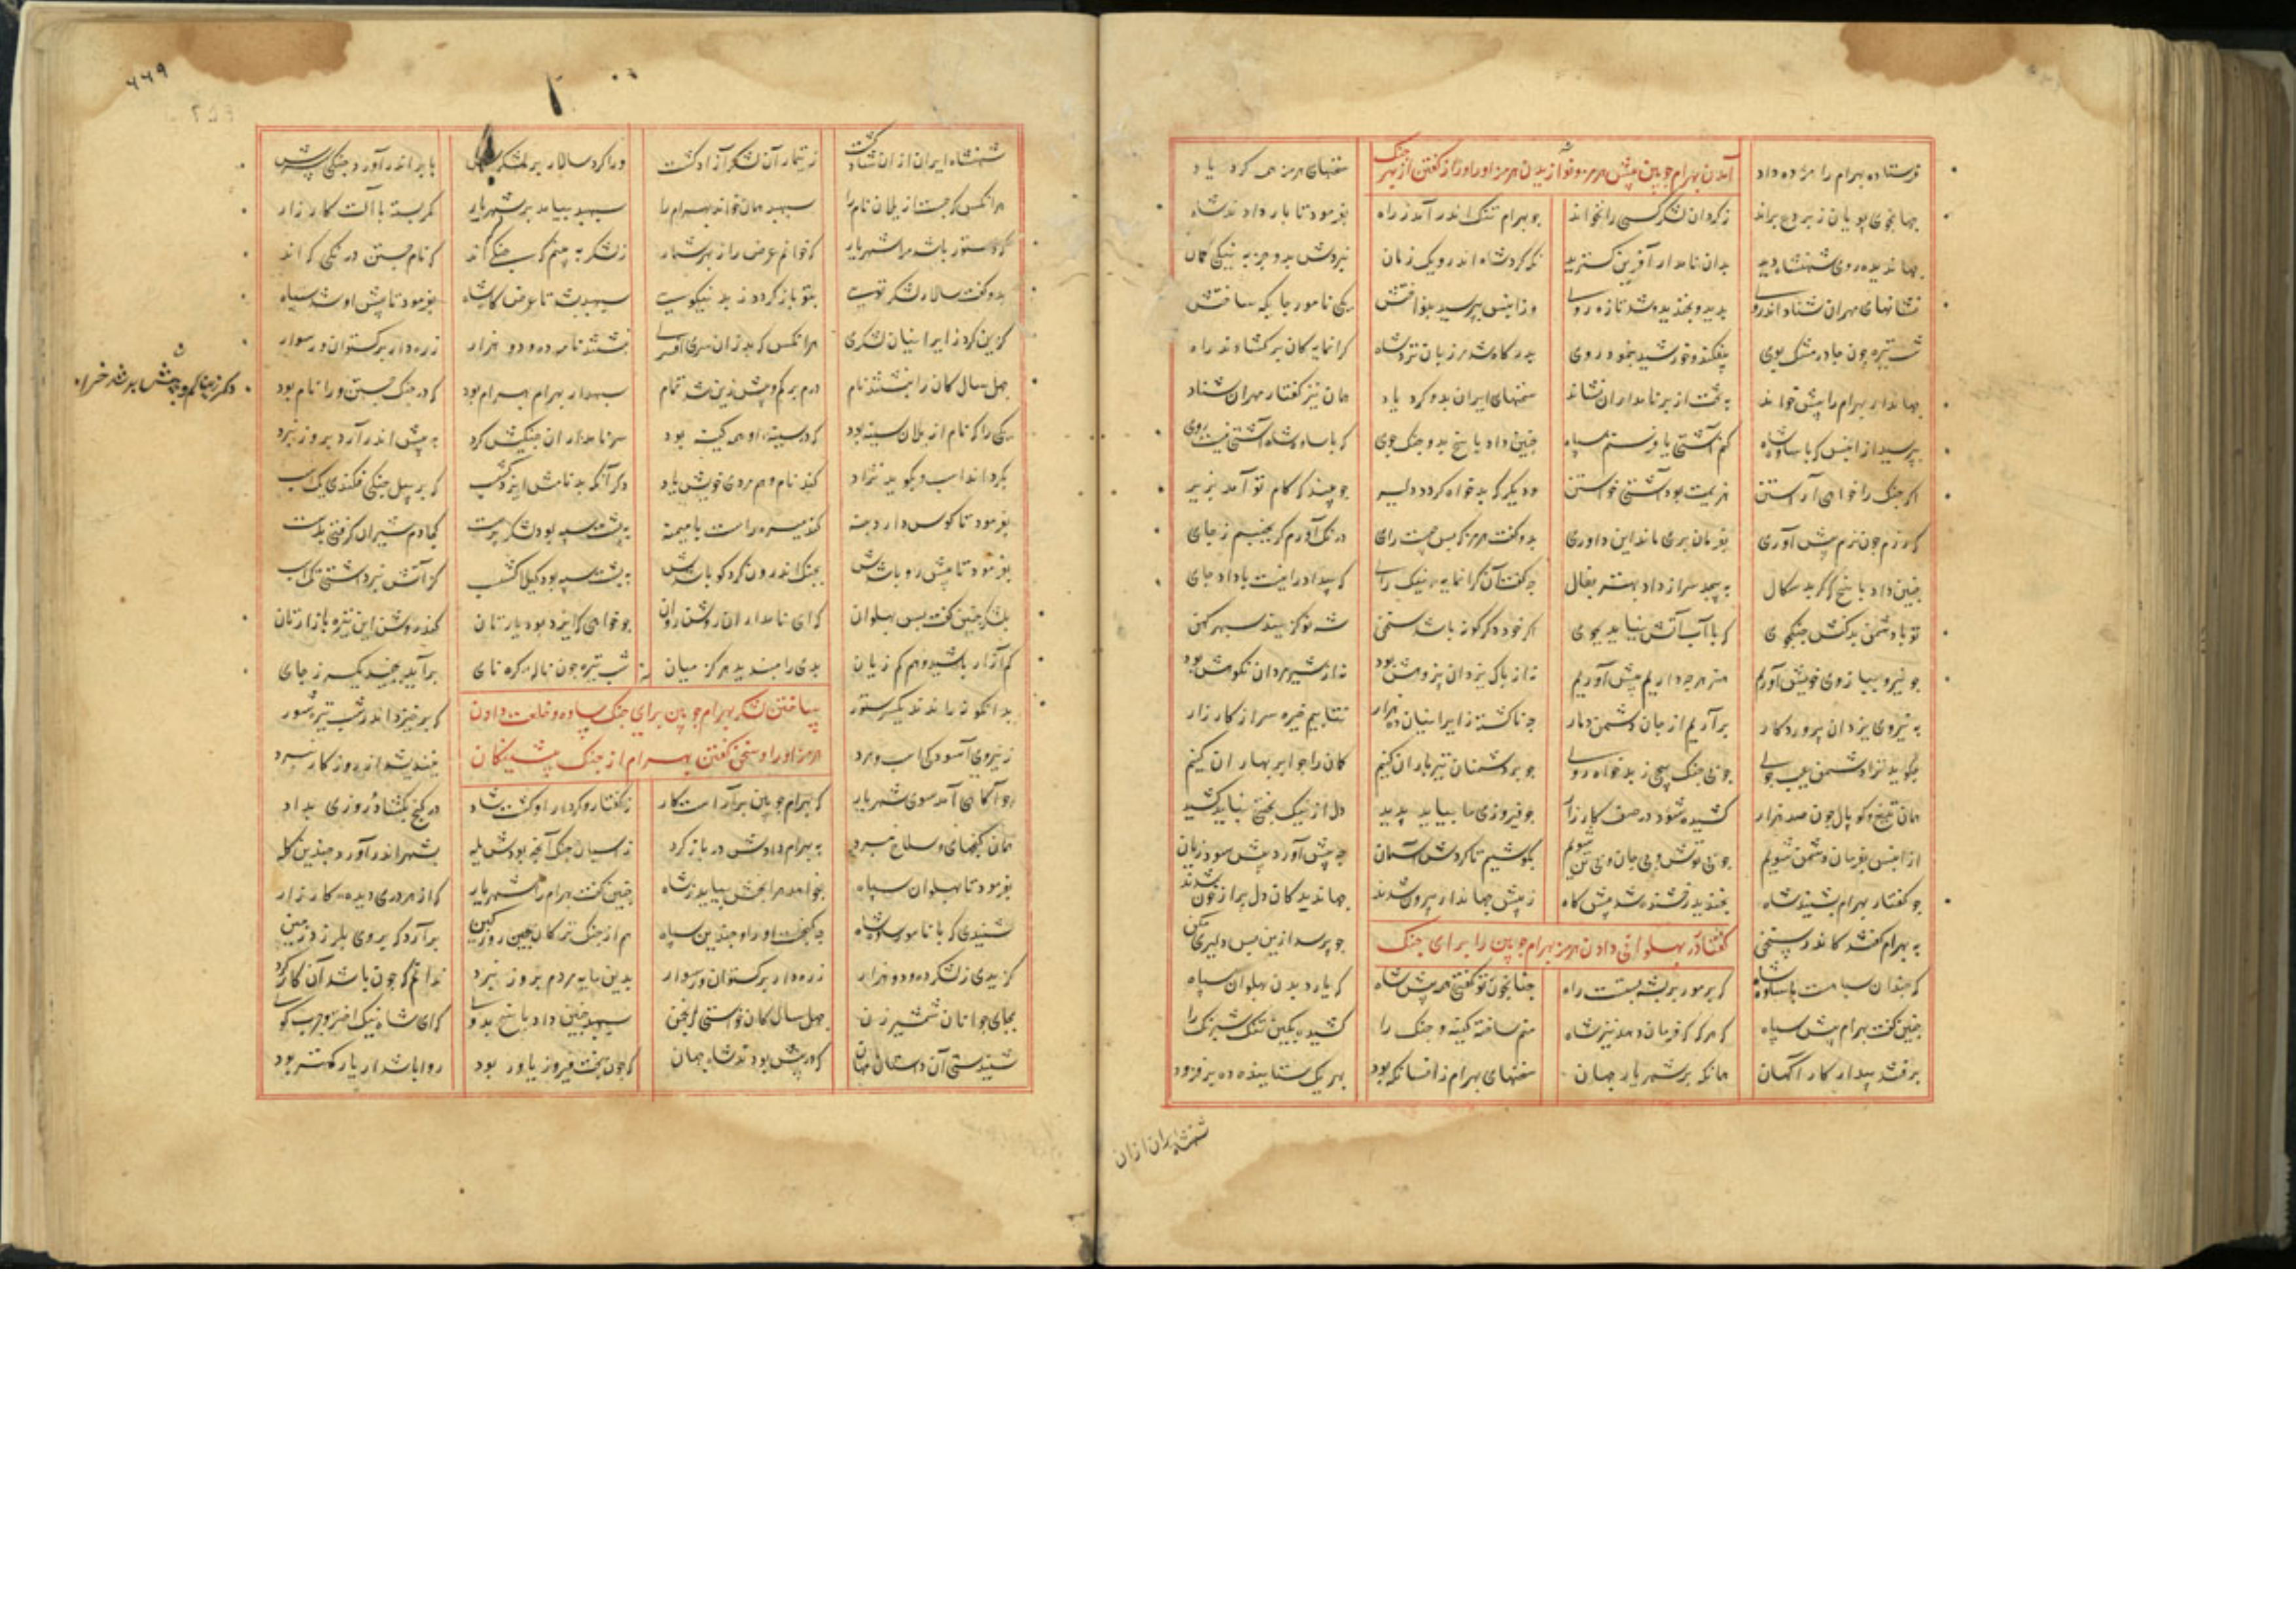 فرستاده بهرام را مژده داد آمدن بهرام چوبین پیش هرمز و نوازیدن هرمز او را و راز گفتن از بهر جنک سخنهای هرمز همی کرد یاد
جهانجوی پویان ز بردع براند ز کردان لشکر کسی را نخواند چو بهرام تنک اندر آمد ز راه بفرمود تا بار دادند شاه
جهاندیده روی شهنشاه دید بدان نامدار آفرین کسترید نکه کرد شاه اندرو یک زمان نبردش بدو جز به نیکی کمان
نشانهای مهران شناد اندروی بدید و بخندید و شد تازه روی وزان پس بپرسید و بنواختش یکی نامور جایکه ساختش
شب تیره چون چادر مشک بوی بیفکند و خورشید بنمود روی بدرکاه شد مرزبان نزد شاه کرانمایکان برکشادند راه
جهاندار بهرام را پیش خواند به تخت از بر نامداران نشاند سخنهای ایران بدو کرد یاد همان نیز کفتار مهران شناد
بپرسید ازان پس که با ساوه شاه کنم آشتی یا فرستم سپاه چنین داد پاسخ بدو جنک جوی که با ساوه شاه آشتی نیست روی
اکر جنک را خواهی آراستن هزیمت بود آشتی خواستن و دیکر که بدخواه کردد دلیر چو بیند که کام تو آمد بزیر
که رزم چون بزم پیش آوری بفرمان بری ماند این داوری بدو کفت هرمز که پس چیست رای درنک آورم کر بجنبم ز جای
چنین داد پاسخ که کر بدسکال بپیچد سر از داد بهتر بفال چه کفت آن کرانمایه نیک رای که بیداد را نیست با داد جای
تو با دشمن بدکنش جنکجوی که با آب آتش نیاید بجوی اکر خود دکرکونه باشد سخن شه نو کزیند سپهر کهن
چو نیرو ببازوی خویش آوریم هنر هرچه داریم پیش آوریم نه از پاک یزدان پژوهش بود نه از شیرمردان نکوهش بود
به نیروی یزدان پروردکار برآریم از جان دشمن دمار چو ناکشته ز ایرانیان ده هزار نتابیم خیره سر از کارزار
چکوید ترا دشمن عیب جوی چو بی جنک پیچی ز بدخواه روی چو بر دشمنان تیرباران کنیم کمان را چو ابر بهاران کنیم
همان تیغ و کوپال چون صد هزار کشیده شود در صف کارزار چو فیروزی ما نیاید پدید دل از نیک بختی بباید کشید
ازان پس بفرمان دشمن شویم چو بی توش و بی جان و بی تن شویم بکوشیم تا کردش آسمان چه پیش آورد پیش سود و زیان
چو کفتار بهرام بشنید شاه بخندید و رخشنده شد پیش کاه ز پیش جهاندار بیرون شدند جهاندیدکان دل پر از خون شدند
به بهرام کفتند کاندر سخن کفتار در پهلوانی دادن هرمز بهرام چوبین را برای جنک چو پرسد ازین پس دلیری مکن
که چندان سپاهست با ساوه شاه که بر مور بر پشه بستست راه چنانچون تو کفتی همی پیش شاه که یارد بدن پهلوان سپاه
چنین کفت بهرام پیش سپاه که هرکه که فرمان دهد نیز شاه منم ساخته کینه و جنک را کشیده بکین تنک شبرنک را
برفتند بیدار کارآکهان همانکه بر شهریار جهان سخنهای بهرام زانسانکه بود بهر یک ستاینده ده برفزود
شهنشاه ایران ازان
۶۶۹
شهنشاه ایران ازان شاد کشت ز تیمار آن لشکر آزاد کشت ورا کرد سالار بر لشکرش بابر اندر آورد جنکی سرش
هرانکس که جست از یلان نام را سپهبد همان خواند بهرام را سپهبد بیامد بر شهریار کمر بسته با آلت کارزار
که دستور باشد مرا شهریار که خوانم عرض را ز بهر شمار ز لشکر به بینم که جنکی که اند که نام جستن درنکی که اند
بدو کفت سالار لشکر تویی بتو باز کردد ز بد نیکویی سپهبد بشد تا عرض کاه شاه بفرمود تا پیش او شد سپاه
کزین کرد ز ایرانیان لشکری هرانکس که بد زان سری افسری نبشتند نام ده و دو هزار زره دار برکستوان ور سوار
چهل سال کان را نبشتند نام درم بر کم و بیش زین شد تمام سپهدار بهرام بهرام بود که در جنک جستن ورا نام بود
یکی را که نام از یلان سینه بود که در سینه او همی کینه بود سر نامداران جنکیش کرد به پیش اندر آرد بروز نبرد
بکرداند اسب و بکوید نژاد کند نام و هم مردی خویش یاد دکر آنکه بد نامش ایزد کشسپ که بر پیل جنکی فکندی یک اسپ
بفرمود تا کوس دارد بنه کند میسره راست با میمنه به پشت سپه بود لشکر پرست که با دم شیران کرفتی بدست
بفرمود تا پیش رو باشدش بجنک اندرون کرد کو باشدش به پشت سپه بود کیلا کشسپ کز آتش نبرداشتی تک اسب
بلشکر چنین کفت پس پهلوان که ای نامداران روشن روان چو خواهی که ایزد بود یارتان کند روشن این تیره بازارتان
کم آزار باشید و هم کم زیان بدی را مبندید هرکز میان شب تیره چون ناله کره نای برآید بجنبید یکسر ز جای
بدانکونه رانند یکسر ستور بساختن لشکر بهرام چوبین برای جنک ساوه و خلعت دادن که برخیزد اندر شب تیره شور
ز نیروی آسودکی اسب و مرد هرمز او را و سخن کفتن بهرام از جنک پیشینکان نیندیشد از روزکار نبرد
چو آکاهی آمد سوی شهریار که بهرام چوبین برآراست کار ز کفتار و کردار او کشت شاد در کنج بکشاد و روزی بداد
همان کنجهای سلاح نبرد به بهرام دادش در باز کرد ز اسپان جنک آنچه بودش یله بشهر اندر آورد چندین کله
بفرمود تا پهلوان سپاه بخواهد هرانچش بباید ز شاه چنین کفت بهرام را شهریار که از هر دری دیده کارزار
شنیدی که با نامور ساوه شاه چه کنجست و راه و چندین سپاه هم از جنک ترکان بچین روز کین برآرد که بروی بلرزد زمین
کزیدی ز لشکر ده و دو هزار زره دار برکستوان ور سوار بدین مایه مردم بروز نبرد ندانم که چون باشد آن کارکرد
بجای جوانان شمشیر زن چهل سال کان خواستی انجمن سپهبد چنین داد پاسخ بدوی که ای شاه نیک اختر و چرب کوی
شنیدستی آن داستان مهان که در پیش بودند شاه جهان که چون بخت فیروز یاور بود روا باشد ار یار کمتر بود